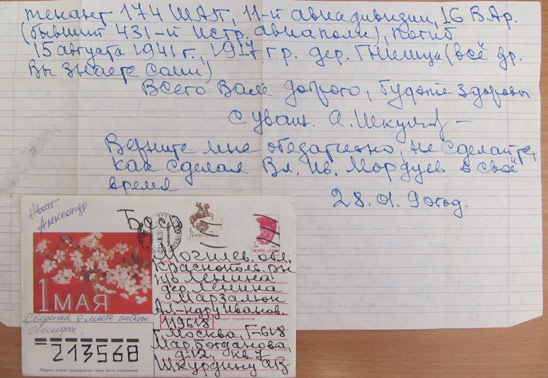 тенант 174 ШАП, 11-й авиадивизии, 16 В.Ар.
(бывший 431-й истр. авиаполк), погиб
15 августа 1941 г., 1917 г.р. дер. (всё др.
Вы знаете сами)
Всего Вам доброго, будьте здоровы
С уваж. А. Шкурд
Верните мне обязательно, не сделайте,
как сделал Вл. Ив. Мордуев в своё
время
28.01.90 год.
Александр
Бср
1 МАЯ
213568
Могилев. обл.
Краснополь. рн
п/о Ленина
дер. Ленина
Марзалюк
Ал-ндру Иванов.
119618
Москва, Г-618
Мар. Богданова
д. 12, кв. 7
Шкурдину А.В